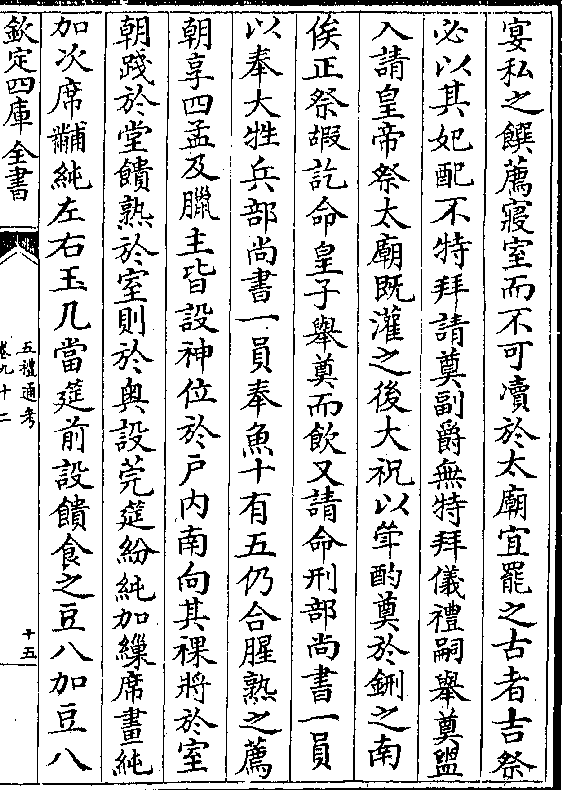 宴私之饌薦寢室而不可瀆於太廟宜罷之古者吉祭
必以其妃配不特拜請奠副爵無特拜儀禮嗣舉奠盥
入請皇帝祭太廟既灌之後大祝以斝酌奠於鉶之南
俟正祭嘏訖命皇子舉奠而飲又請命刑部尚書一員
以奉大牲兵部尚書一員奉魚十有五仍合腥熟之薦
朝享四孟及臘主皆設神位於戶内南向其祼將於室
朝踐於堂饋熟於室則於奥設莞筵紛純加繅席畫純
加次席黼純左右玉几當筵前設饋食之豆八加豆八
欽定四庫全書
五禮通考
卷九十二
十五